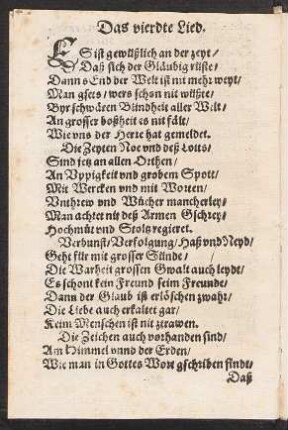 Das vierdte Lied.
ES ist gewüßlich an der zeyt /
Daß sich der Gläubig rüste /
Dann s End der Welt ist nit mehr weyt /
Man gsets / wers schon nit wüßte /
Byr schwären Blindheit aller Welt /
An grosser boßheit es nit fält /
Wie vns der Herre hat gemeldet.
Die Zeyten Noe vnd deß Lotts /
Sind jetz an allen Orthen /
An Vppigkeit vnd grobem Spott /
Mit Wercken vnd mit Worten /
Vnthrew vnd Wücher mancherley /
Man achtet nit deß Armen Gschrey /
Hochmüt vnd Stoltz regieret.
Verbunst / Verfolgung / Haß vnd Neyd /
Geht für mit grosser Sünde /
Die Warheit grossen Gwalt auch leydt /
Es schont kein Freund seim Freunde /
Dann der Glaub ist erlöschen zwahr /
Die Liebe auch erkaltet gar /
Keim Menschen ist nit zetrawen.
Die Zeichen auch vorhanden sind /
Am Himmel vnnd der Erden /
Wie man in Gottes Wort gschriben findt /
Daß